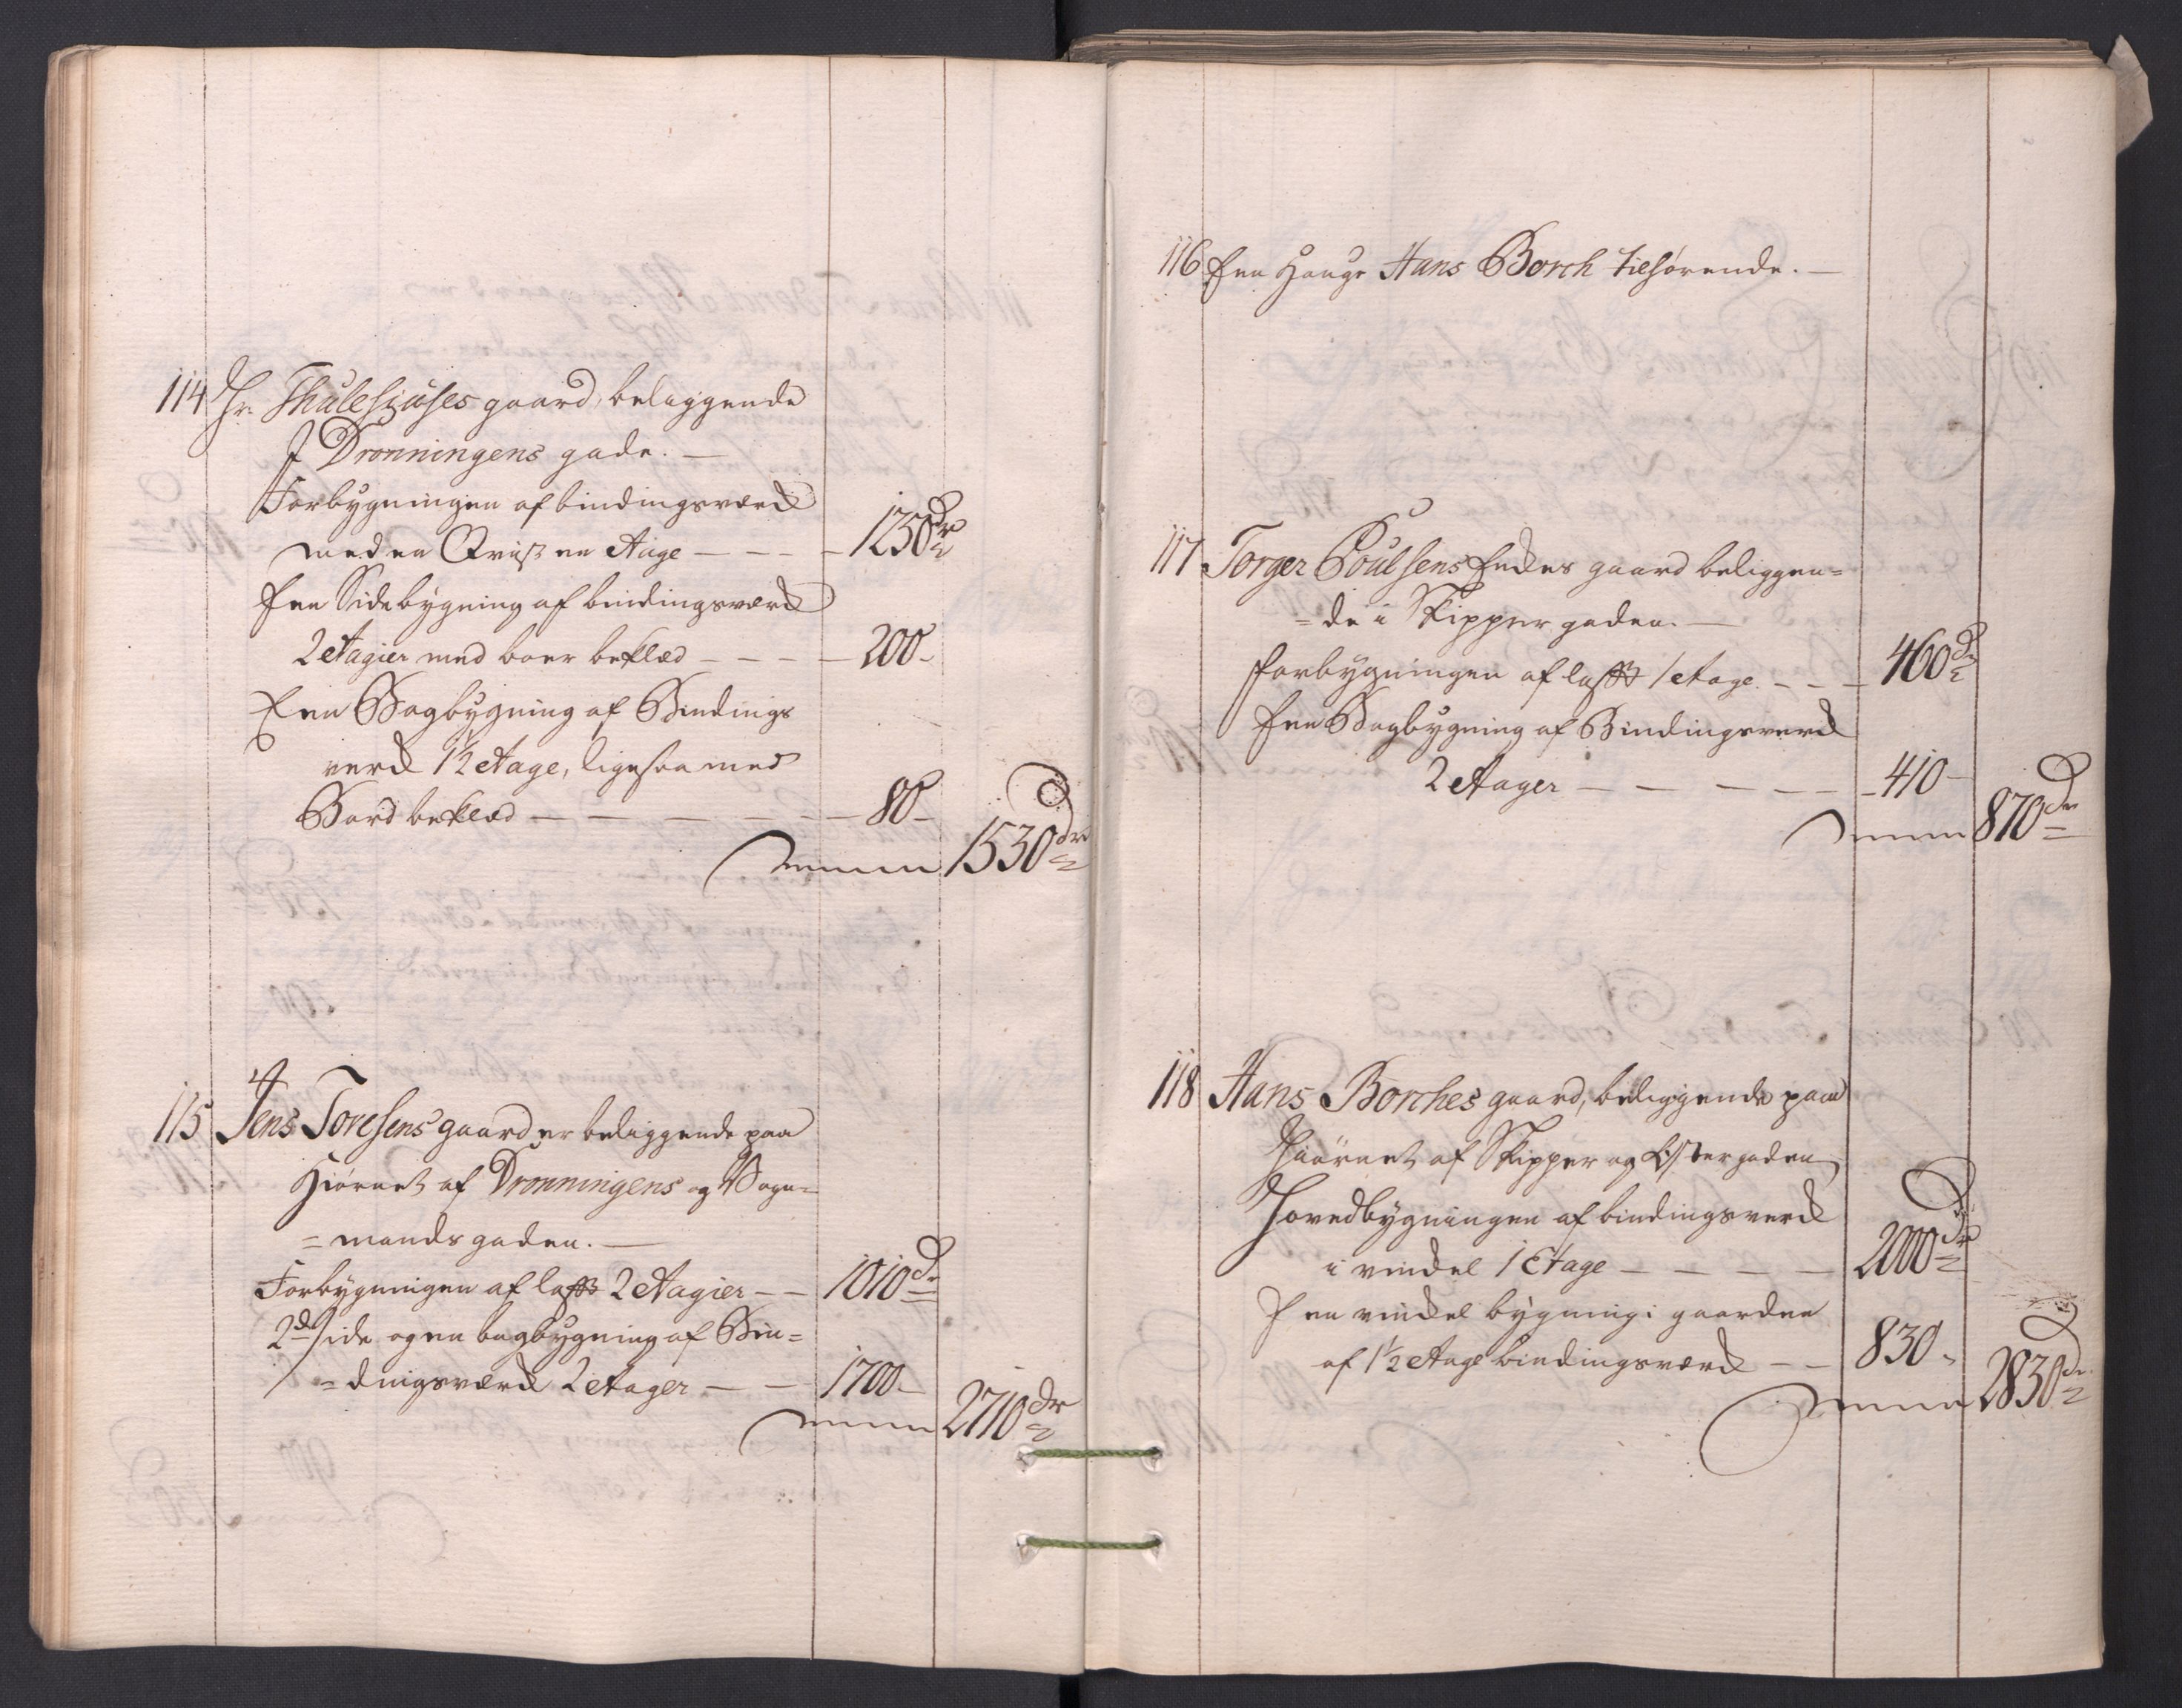 114 Hr. Thulesiuses gaard, beliggende
J Dronningens gade. —
Forbygningen af bindingsværck
med en Qvist en Etage — — — — 1250 dr
Een Sidebygning af bindingsværck
2 Etagier med boer beklæd — — — — 200 –
Een Bagbygning af Bindings
verck 1½ Etage, ligesaa med
Bord beklæd — — — — — — 80 –
Summa 1530 dr
115 Jens Toresens gaard er beliggende paa
Hiørnet af Dronningens og Vogn=
=mands gaden. —
Forbygningen af laft 2 Etagier — — 1010 dr
2de side og en bagbygning af Bin=
=dingsværck 2 Etager — — 1700 –
Summa 2710 dr
116 Een Hauge Hans Borch tilhørende. —
117 Torger Poulsens Enckes gaard beliggen=
=de i Skipper gaden. —
Forbygningen af laft 1 Etage. — — — 460 dr
Een Bagbygning af Bindingsverck
2 Etager — — — — — 410 –
Summa 870 dr
118 Hans Borches gaard, beliggende paa
Hiørnet af Skipper og Østergaden,
Hovedbygningen af bindingsverck
i vinckel 1 Etage — — — — 2000 dr
J en vinckel bygning i gaarden
af 1½ Etage bindingsværck — — 830 –
Summa 2830 dr